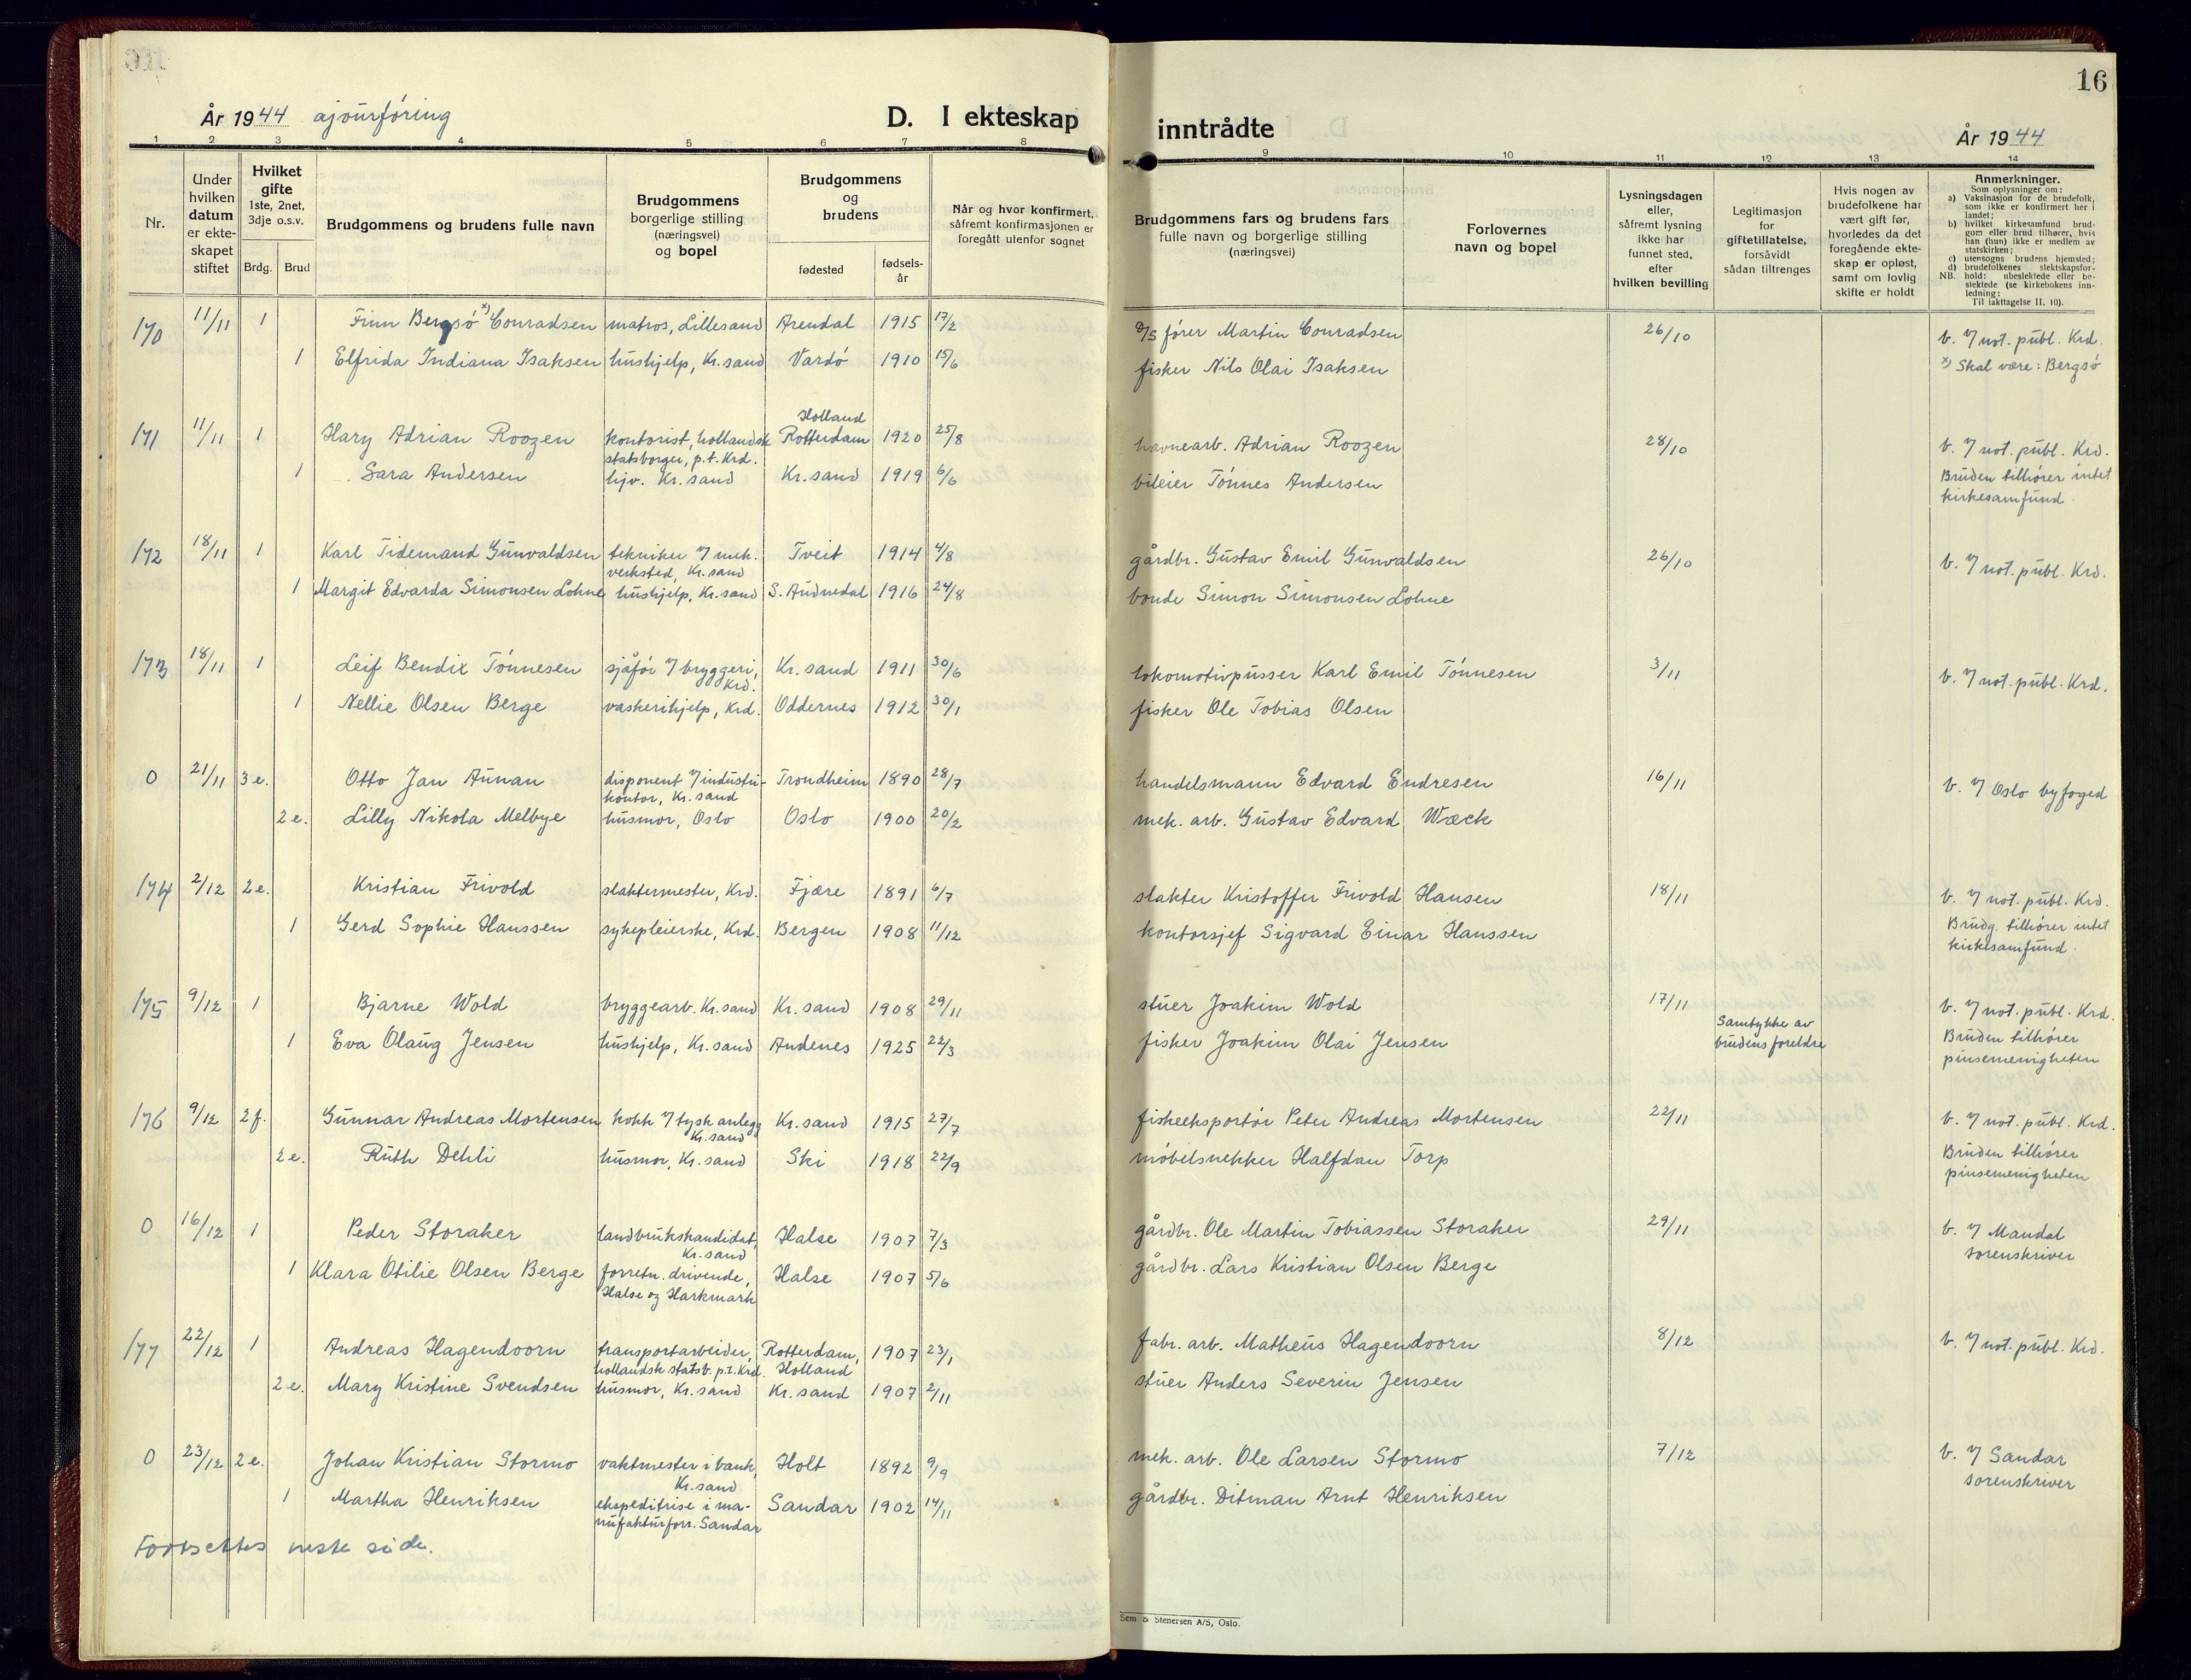 16
År 1944 ajourføring
D. I ekteskap inntrådte
År 1944
1 2 3 4 5 6 7 8 9 10 11 12 13 14
Nr.
Under hvilken datum er ekte- skapet stiftet
Hvilket gifte 1ste, 2net, 3dje o.s.v.
Brdg. Brud
Brudgommens og brudens fulle navn
Brudgommens borgerlige stilling (næringsvei) og bopel
Brudgommens og brudens
fødested
fødsels- år
Når og hvor konfirmert, såfremt konfirmasjonen er foregått utenfor sognet
Brudgommens fars og brudens fars fulle navn og borgerlige stilling (næringsvei)
Forlovernes navn og bopel
Lysningsdagen eller, såfremt lysning ikke har funnet sted, efter hvilken bevilling
Legitimasjon for giftetillatelse, forsåvidt sådan tiltrenges
Hvis nogen av brudefolkene har vært gift før, hvorledes da det foregående ekte- skap er opløst, samt om lovlig skifte er holdt
Anmerkninger.
Som oplysninger om:
a) Vaksinasjon for de brudefolk, som ikke er konfirmert her i landet;
b) hvilket kirkesamfund brud- gom eller brud tilhører, hvis han (hun) ikke er medlem av statskirken;
c) utensogns brudens hjemsted;
d) brudefolkenes slektskapsfor- hold: ubeslektede eller be- slektede (se kirkebokens inn- ledning:
NB. Til iakttagelse II. 10).
170 11/11 1 Finn Bergsö x) Conradsen matros, Lillesand Arendal 1915 17/2 D/S fører Martin Conradsen 26/10 v. 7 not. publ. Krd.
1 Elfrida Indiana Isaksen hushjelp, Kr.sand Vardö 1910 15/6 fisker Nils Olai Isaksen x) Skal være: Bergsö
171 11/11 1 Hary Adrian Roozen kontorist, hollandsk statsborger, p.t. Krd. Holland Rotterdam 1920 25/8 havnearb. Adrian Roozen 28/10 v. 7 not. publ. Krd.
1 Sara Andersen hjv. Kr.sand Kr.sand 1919 6/6 bileier Tönnes Andersen Bruden tilhører intet kirkesamfund.
172 18/11 1 Karl Tidemand Gunvaldsen tekniker 7 mek. verksted, Kr.sand Tveit 1914 4/8 gårdbr. Gustav Emil Gunvaldsen 26/10 v. 7 not. publ. Krd.
1 Margit Edvarda Simonsen Lohne hushjelp, Kr.sand S. Audnedal 1916 24/8 bonde Simon Simonsen Lohne
173 18/11 1 Leif Bendix Tönnesen sjåför 7 bryggeri, Krd. Kr.sand 1911 30/6 lokomotivpusser Karl Emil Tönnesen 3/11 v. 7 not. publ. Krd.
1 Nellie Olsen Berge vaskerihjelp, Krd. Oddernes 1912 30/1 fisker Ole Tobias Olsen
0 21/11 3 e. Otto Jan Aunan disponent 7 industri- kontor, Kr.sand Trondheim 1890 28/7 handelsmann Edvard Endresen 16/11 v. 7 Oslo byfoged
2 e. Lilly Nikola Melbye husmor, Oslo Oslo 1900 20/2 mek. arb. Gustav Edvard Wæck
174 2/12 2 e. Kristian Frivold slaktermester, Krd. Fjære 1891 6/7 slakter Kristoffer Frivold Hansen 18/11 v. 7 not. publ. Krd.
1 Gerd Sophie Hanssen sykepleierske, Krd. Bergen 1908 11/12 kontorsjef Sigvard Einar Hanssen Brudg. tilhører intet kirkesamfund.
175 9/12 1 Bjarne Wold bryggearb. Kr.sand Kr.sand 1908 29/11 stuer Joakim Wold 17/11 v. 7 not. publ. Krd.
1 Eva Olaug Jensen hushjelp, Kr.sand Andenes 1925 22/3 fisker Joakim Olai Jensen Samtykke av brudens foreldre Bruden tilhører pinsemenigheten
176 9/12 2 f. Gunnar Andreas Mortensen kokk 7 tysk anlegg Kr.sand Kr.sand 1915 27/7 fiskeeksportör Peter Andreas Mortensen 22/11 v. 7 not. publ. Krd.
2 e. Ruth Dehli husmor, Kr.sand Ski 1918 22/9 möbelsnekker Halfdan Torp Bruden tilhører pinsemenigheten
0 16/12 1 Peder Storaker landbrukskandidat, Kr.sand Halse 1907 7/3 gårdbr. Ole Martin Tobiassen Storaker 29/11 v. 7 Mandal sorenskriver
1 Klara Otilie Olsen Berge forretn.drivende, Halse og Harkmark Halse 1907 5/6 gårdbr. Lars Kristian Olsen Berge
177 22/12 1 Andreas Hagendoorn transportarbeider, hollandsk statsb. p.t. Krd. Rotterdam, Holland 1907 23/1 fabr. arb. Matheus Hagendoorn 8/12 v. 7 not. publ. Krd.
2 e. Mary Kristine Svendsen husmor, Kr.sand Kr.sand 1907 2/11 stuer Anders Severin Jensen
0 23/12 2 e. Johan Kristian Stormo vaktmester i bank, Kr.sand Holt 1892 9/9 mek. arb. Ole Larsen Stormo 7/12 v. 7 Sandar sorenskriver
1 Martha Henriksen ekspeditrise i ma- nufakturforr. Sandar Sandar 1902 14/11 gårdbr. Ditman Arnt Henriksen
Fortsettes neste side.
Sem & Stenersen A/S, Oslo.